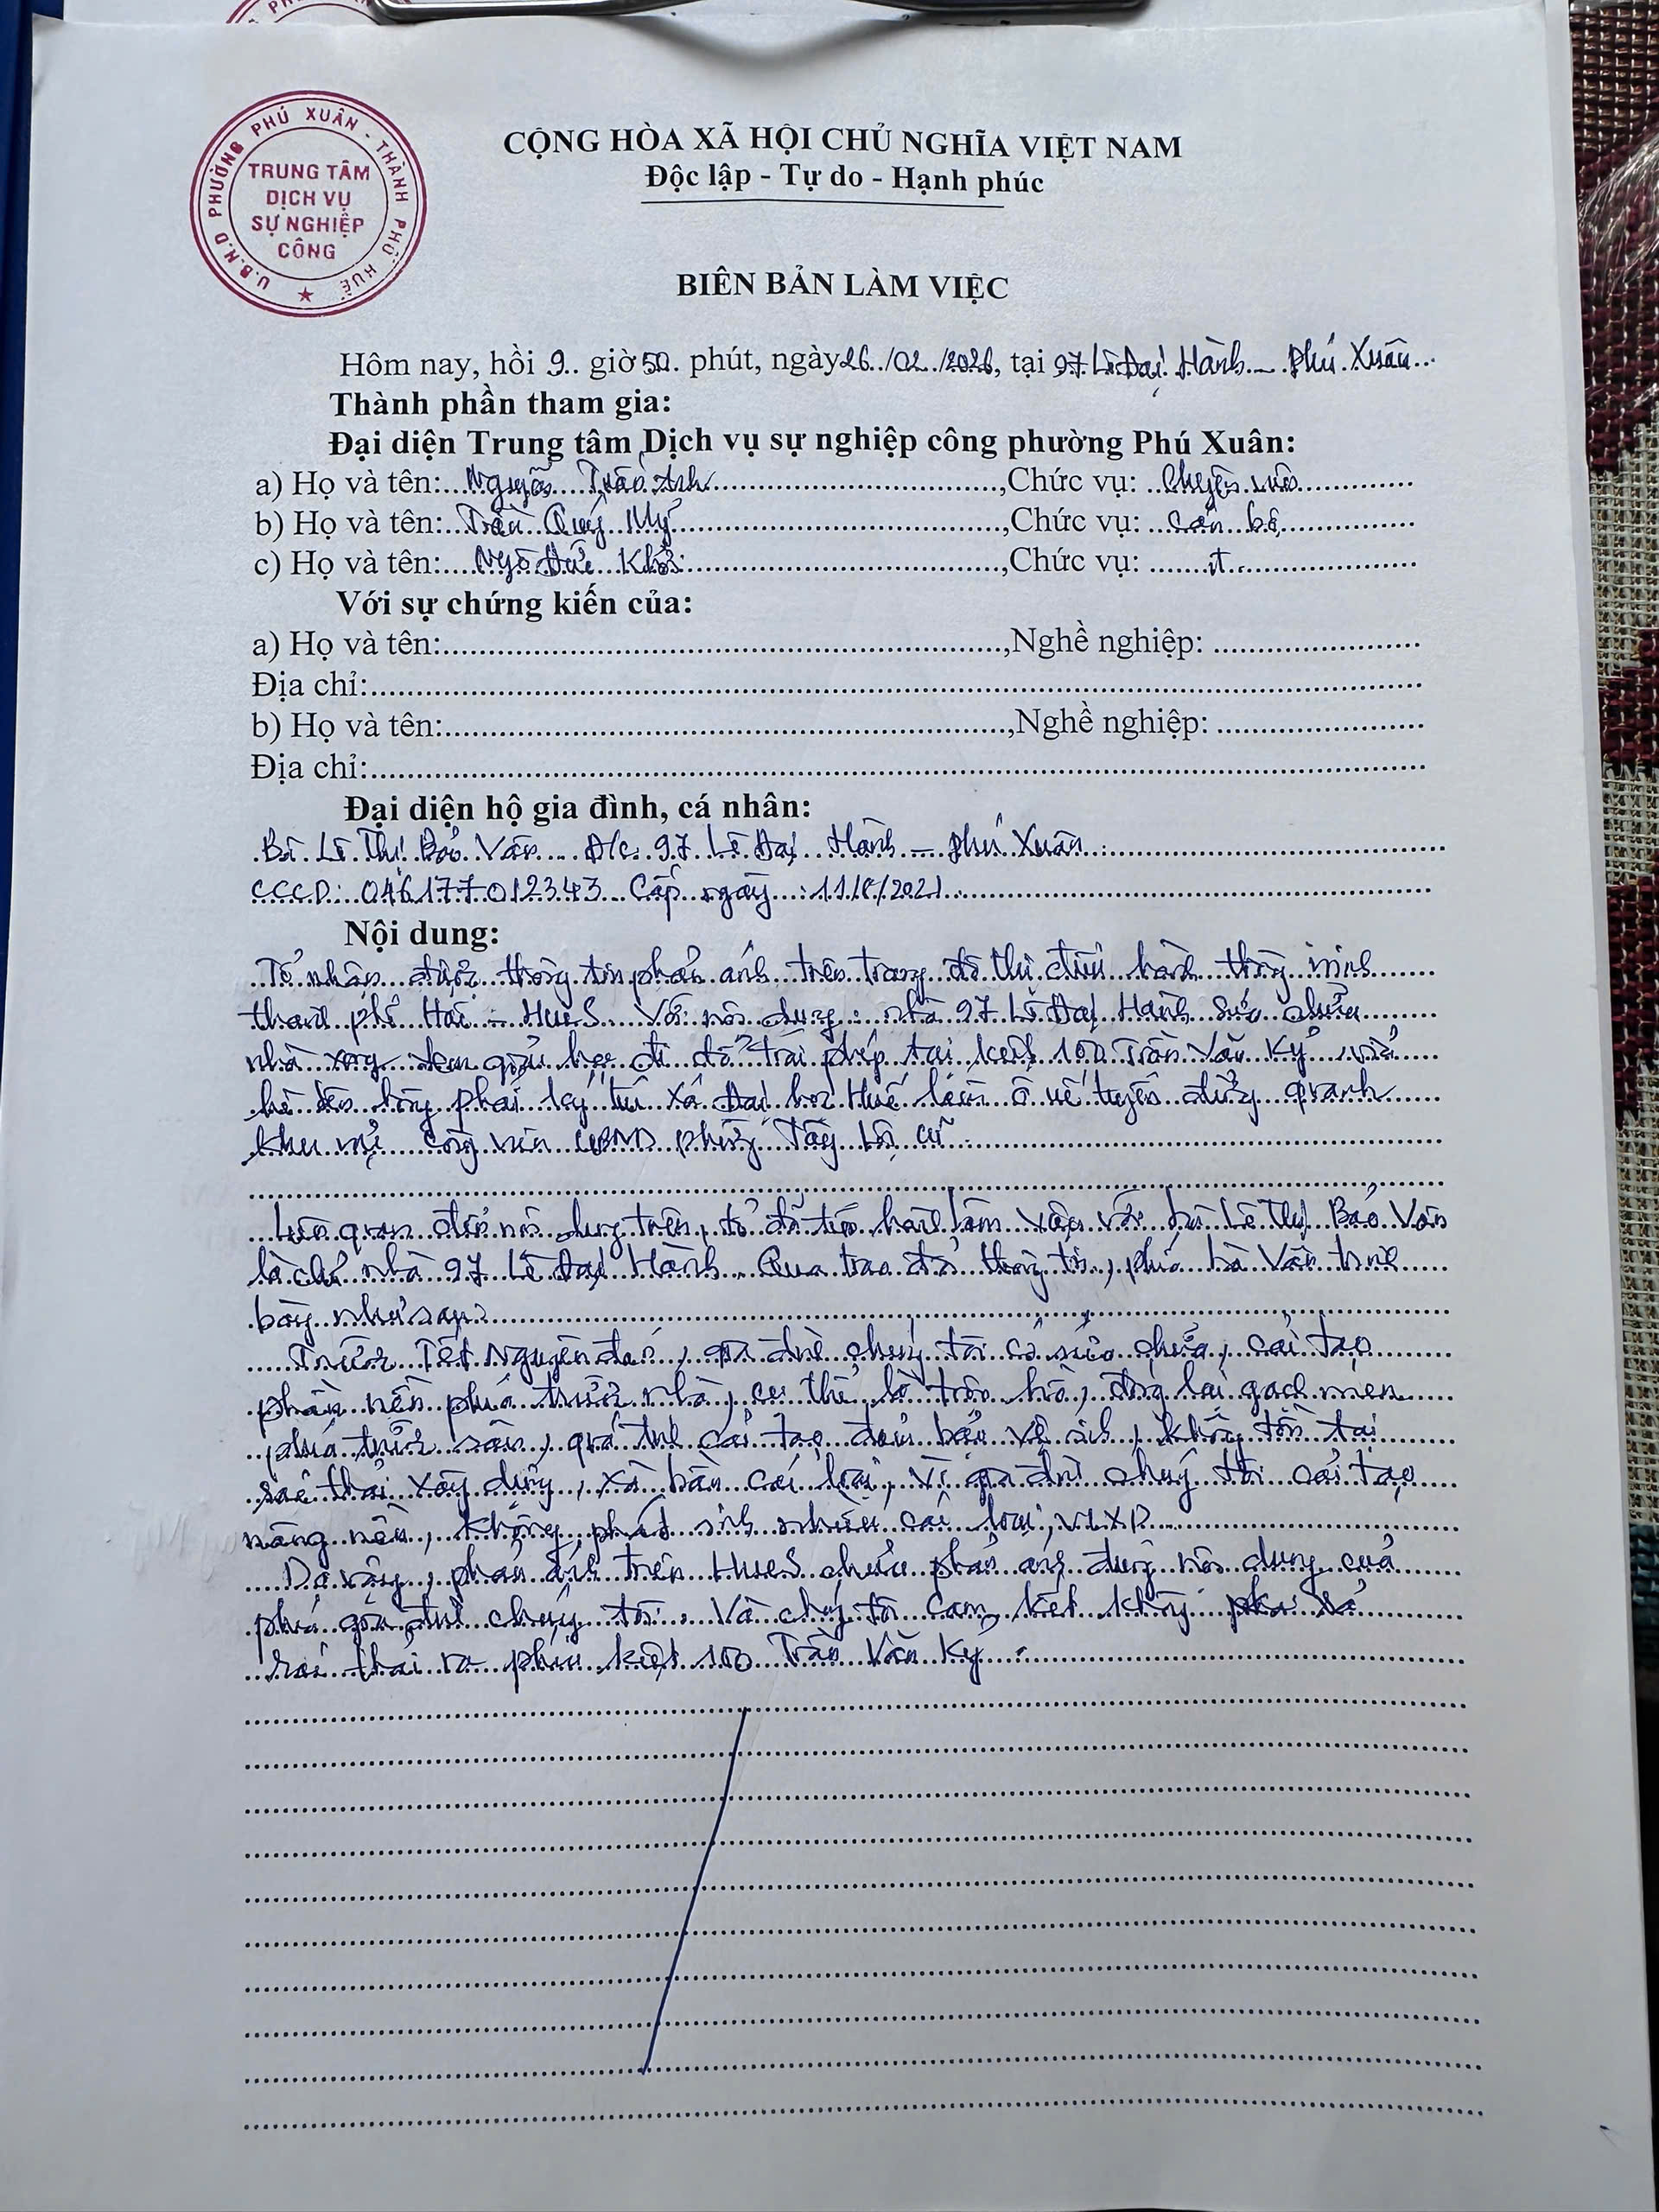 U.B.N.D PHƯỜNG PHÚ XUÂN - THÀNH PHỐ HUẾ
TRUNG TÂM
DỊCH VỤ
SỰ NGHIỆP
CÔNG
CỘNG HÒA XÃ HỘI CHỦ NGHĨA VIỆT NAM
Độc lập - Tự do - Hạnh phúc
BIÊN BẢN LÀM VIỆC
Hôm nay, hồi 9 giờ 50 phút, ngày 26/02/2026, tại 97 Lê Đại Hành - Phú Xuân
Thành phần tham gia:
Đại diện Trung tâm Dịch vụ sự nghiệp công phường Phú Xuân:
a) Họ và tên: Nguyễn Anh, Chức vụ: Chuyên viên
b) Họ và tên: Trần Quý Mỹ, Chức vụ: Cán bộ
c) Họ và tên: Ngô Đức Khôi, Chức vụ: nt
Với sự chứng kiến của:
a) Họ và tên:, Nghề nghiệp:
Địa chỉ:
b) Họ và tên:, Nghề nghiệp:
Địa chỉ:
Đại diện hộ gia đình, cá nhân:
Bà Lê Thị Bảo Vân Đ/c 97 Lê Đại Hành - Phú Xuân
CCCD: 046177012343 Cấp ngày: /2021
Nội dung:
Tổ nhận được thông tin phản ánh trên trang đô thị điều hành thông minh
thành phố Huế - HueS Với nội dung: nhà 97 Lê Đại Hành sửa chữa
nhà xong đem đi đổ trái phép tại kiệt 100 Trần Văn Kỷ, vỉa
hè bên hông phải ký túc xá Đại học Huế tuyến đường quanh
khu vực công viên UBND phường Tây Lộc cũ.
Liên quan đến nội dung trên, tổ đã tiến hành làm việc với bà Lê Thị Bảo Vân
là chủ nhà 97 Lê Đại Hành. Qua trao đổi thông tin, phía bà Vân trình
bày như sau:
Trước Tết Nguyên đán, gia đình chúng tôi có sửa chữa, cải tạo
phần nền phía trước nhà, cụ thể là đóng lại gạch men
phía trước sân, quá trình cải tạo đảm bảo vệ sinh, không tồn tại
rác thải xây dựng, xà bần các loại, vì gia đình chúng tôi cải tạo
nâng nền, không phát sinh nhiều các loại VLXD.
Do vậy, phản ánh trên HueS chưa phản ánh đúng nội dung của
phía gia đình chúng tôi. Và chúng tôi cam kết không phải đổ
rác thải ra phía kiệt 100 Trần Văn Kỷ.